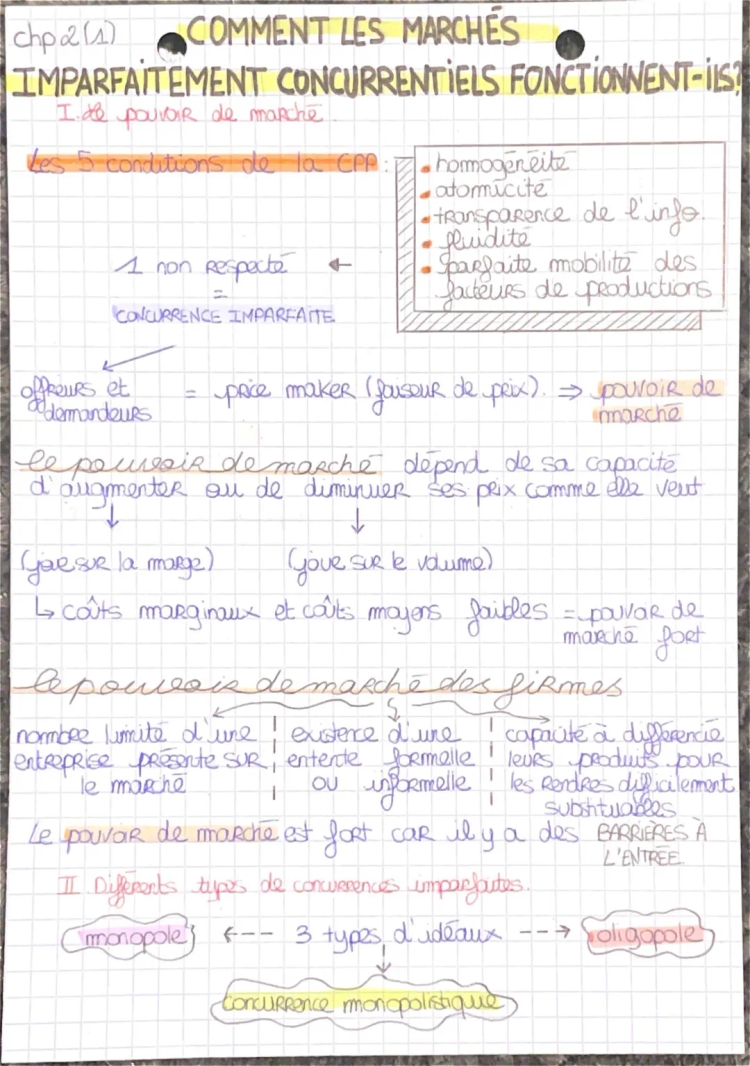 chp 2 (1)
COMMENT LES MARCHÉS
IMPARFAITEMENT CONCURRENTIELS FONCTIONNENT-ILS?
I. Le pouvoir de marché.
Les 5 conditions de la CPP :
• homogénéité
• atomicité
• transparence de l'info.
• fluidité
• parfaite mobilité des
facteurs de productions
1 non respecté ←
=
CONCURRENCE IMPARFAITE
offreurs et
demandeurs
= price maker (faiseur de prix). ⇒ pouvoir de
marché
le pouvoir de marché dépend de sa capacité
d'augmenter ou de diminuer ses prix comme elle veut
↓ ↓
(joue sur la marge) (joue sur le volume)
↳ coûts marginaux et coûts moyens faibles = pouvoir de
marché fort
le pouvoir de marché des firmes
nombre limité d'une
entreprise présente sur
le marché
existence d'une
entente formelle
ou informelle
capacité à différencié
leurs produits pour
les rendres difficilement
substituables
Le pouvoir de marché est fort car il y a des BARRIÈRES À
L'ENTRÉE
II Différents types de concurrences imparfaites.
monopole ←--- 3 types d'idéaux ---→ oligopole
↓
concurrence monopolistique